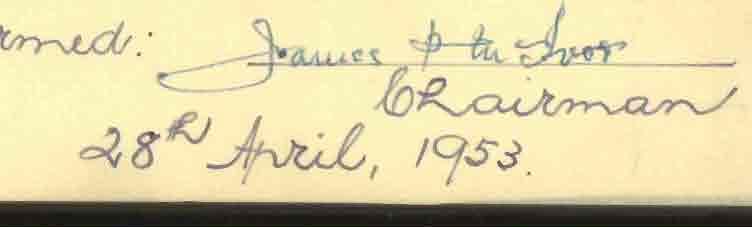 rmed: James
Chairman
28th April, 1953.